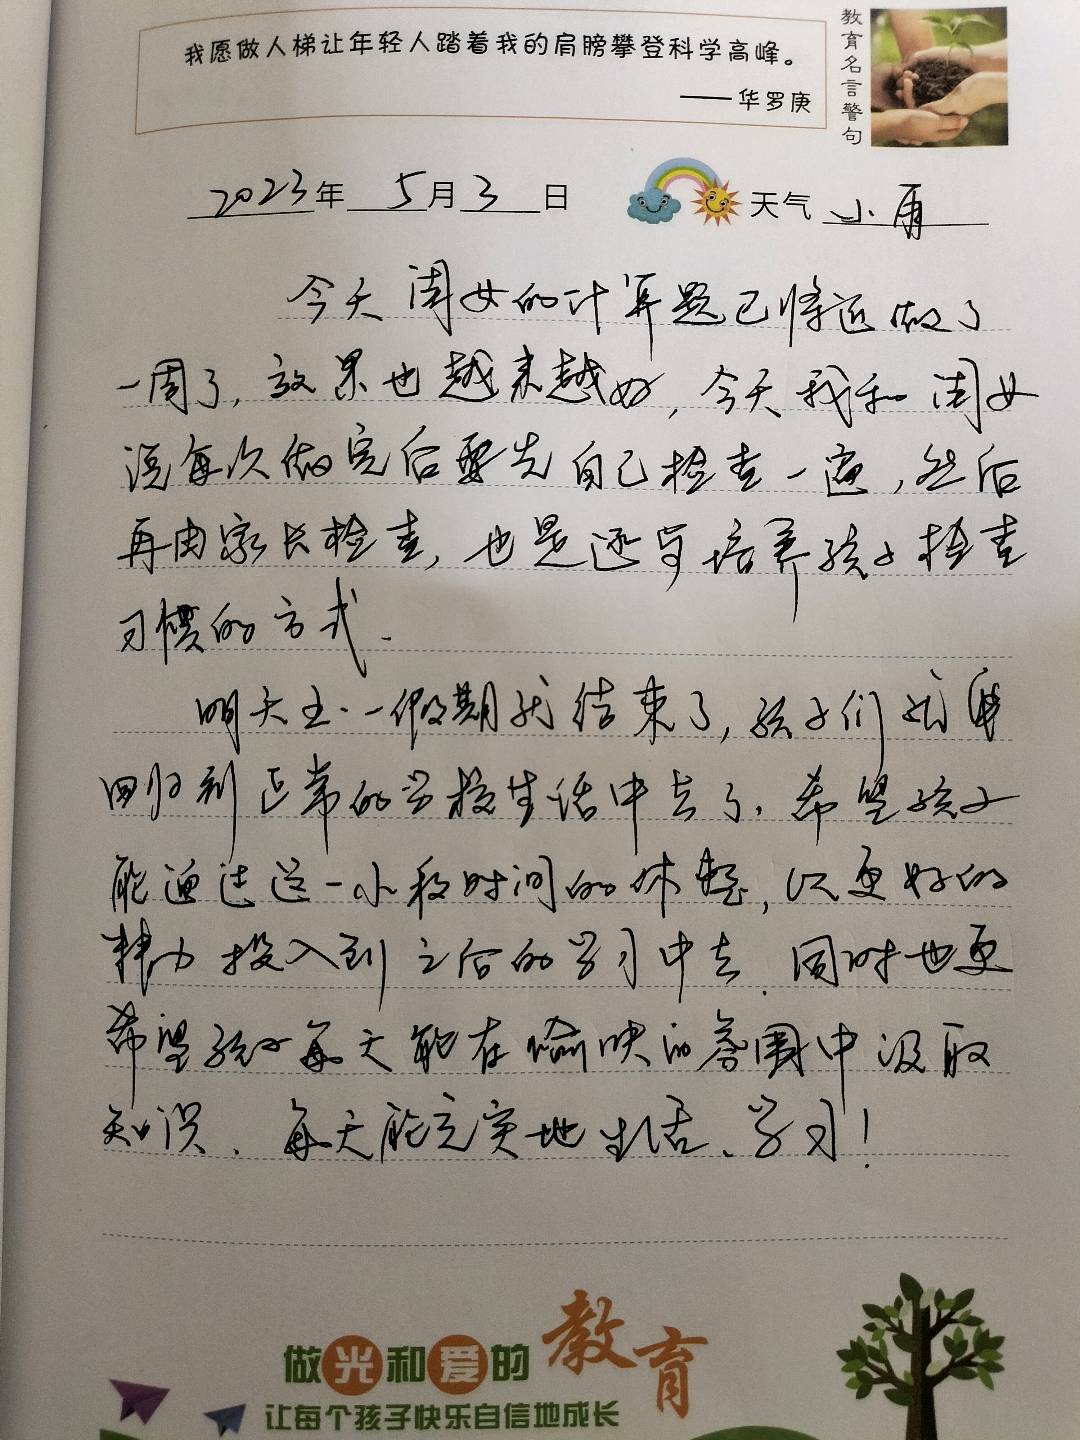 我愿做人梯让年轻人踏着我的肩膀攀登科学高峰。
——华罗庚
教育名言警句
2023年5月3日 天气 小雨
今天闺女的计算题已将近做了
一周了,效果也越来越好,今天我和闺女
说每次做完后要先自己检查一遍,然后
再由家长检查,也是逐步培养孩子检查
习惯的方式.
明天五·一假期就结束了,孩子们就要
回归到正常的学校生活中去了.希望孩子
能通过这一小段时间的休整,以更好的
精力投入到之后的学习中去.同时也更
希望孩子每天能在愉快的氛围中汲取
知识、每天能充实地生活、学习!
做光和爱的教育
让每个孩子快乐自信地成长